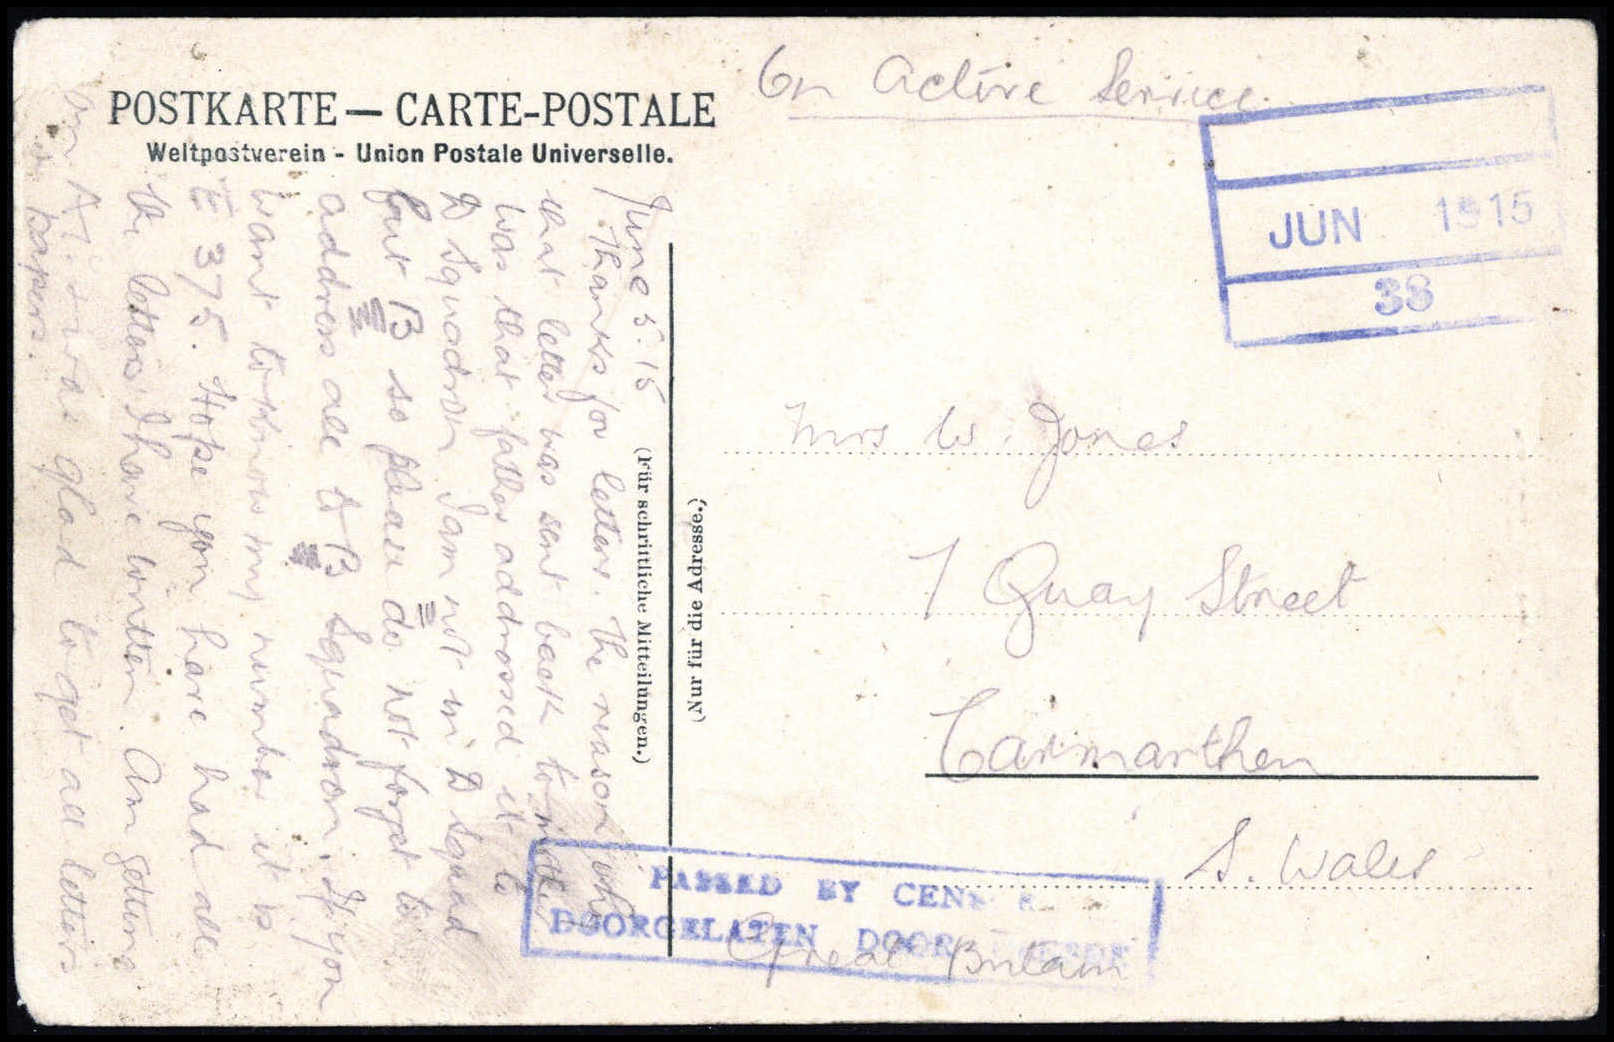 On Active Service.
POSTKARTE — CARTE-POSTALE
Weltpostverein - Union Postale Universelle.
JUN 1915
38
June 5. 15
Thanks for letters. The reason why
that letter was sent back to mother
was that father addressed it to
D Squadron I am not in D Squad
but B so please do not forget to
address all to B Squadron. If you
want to know my number it is
375. Hope you have had all
the letters I have written. Am getting
on A1. I was glad to get all letters
papers.
(Für schriftliche Mitteilungen.)
(Nur für die Adresse.)
Mrs W. Jones
7 Quay Street
Carmarthen
S. Wales
Great Britain
PASSED BY CENS R
DOORGELATEN DOOR